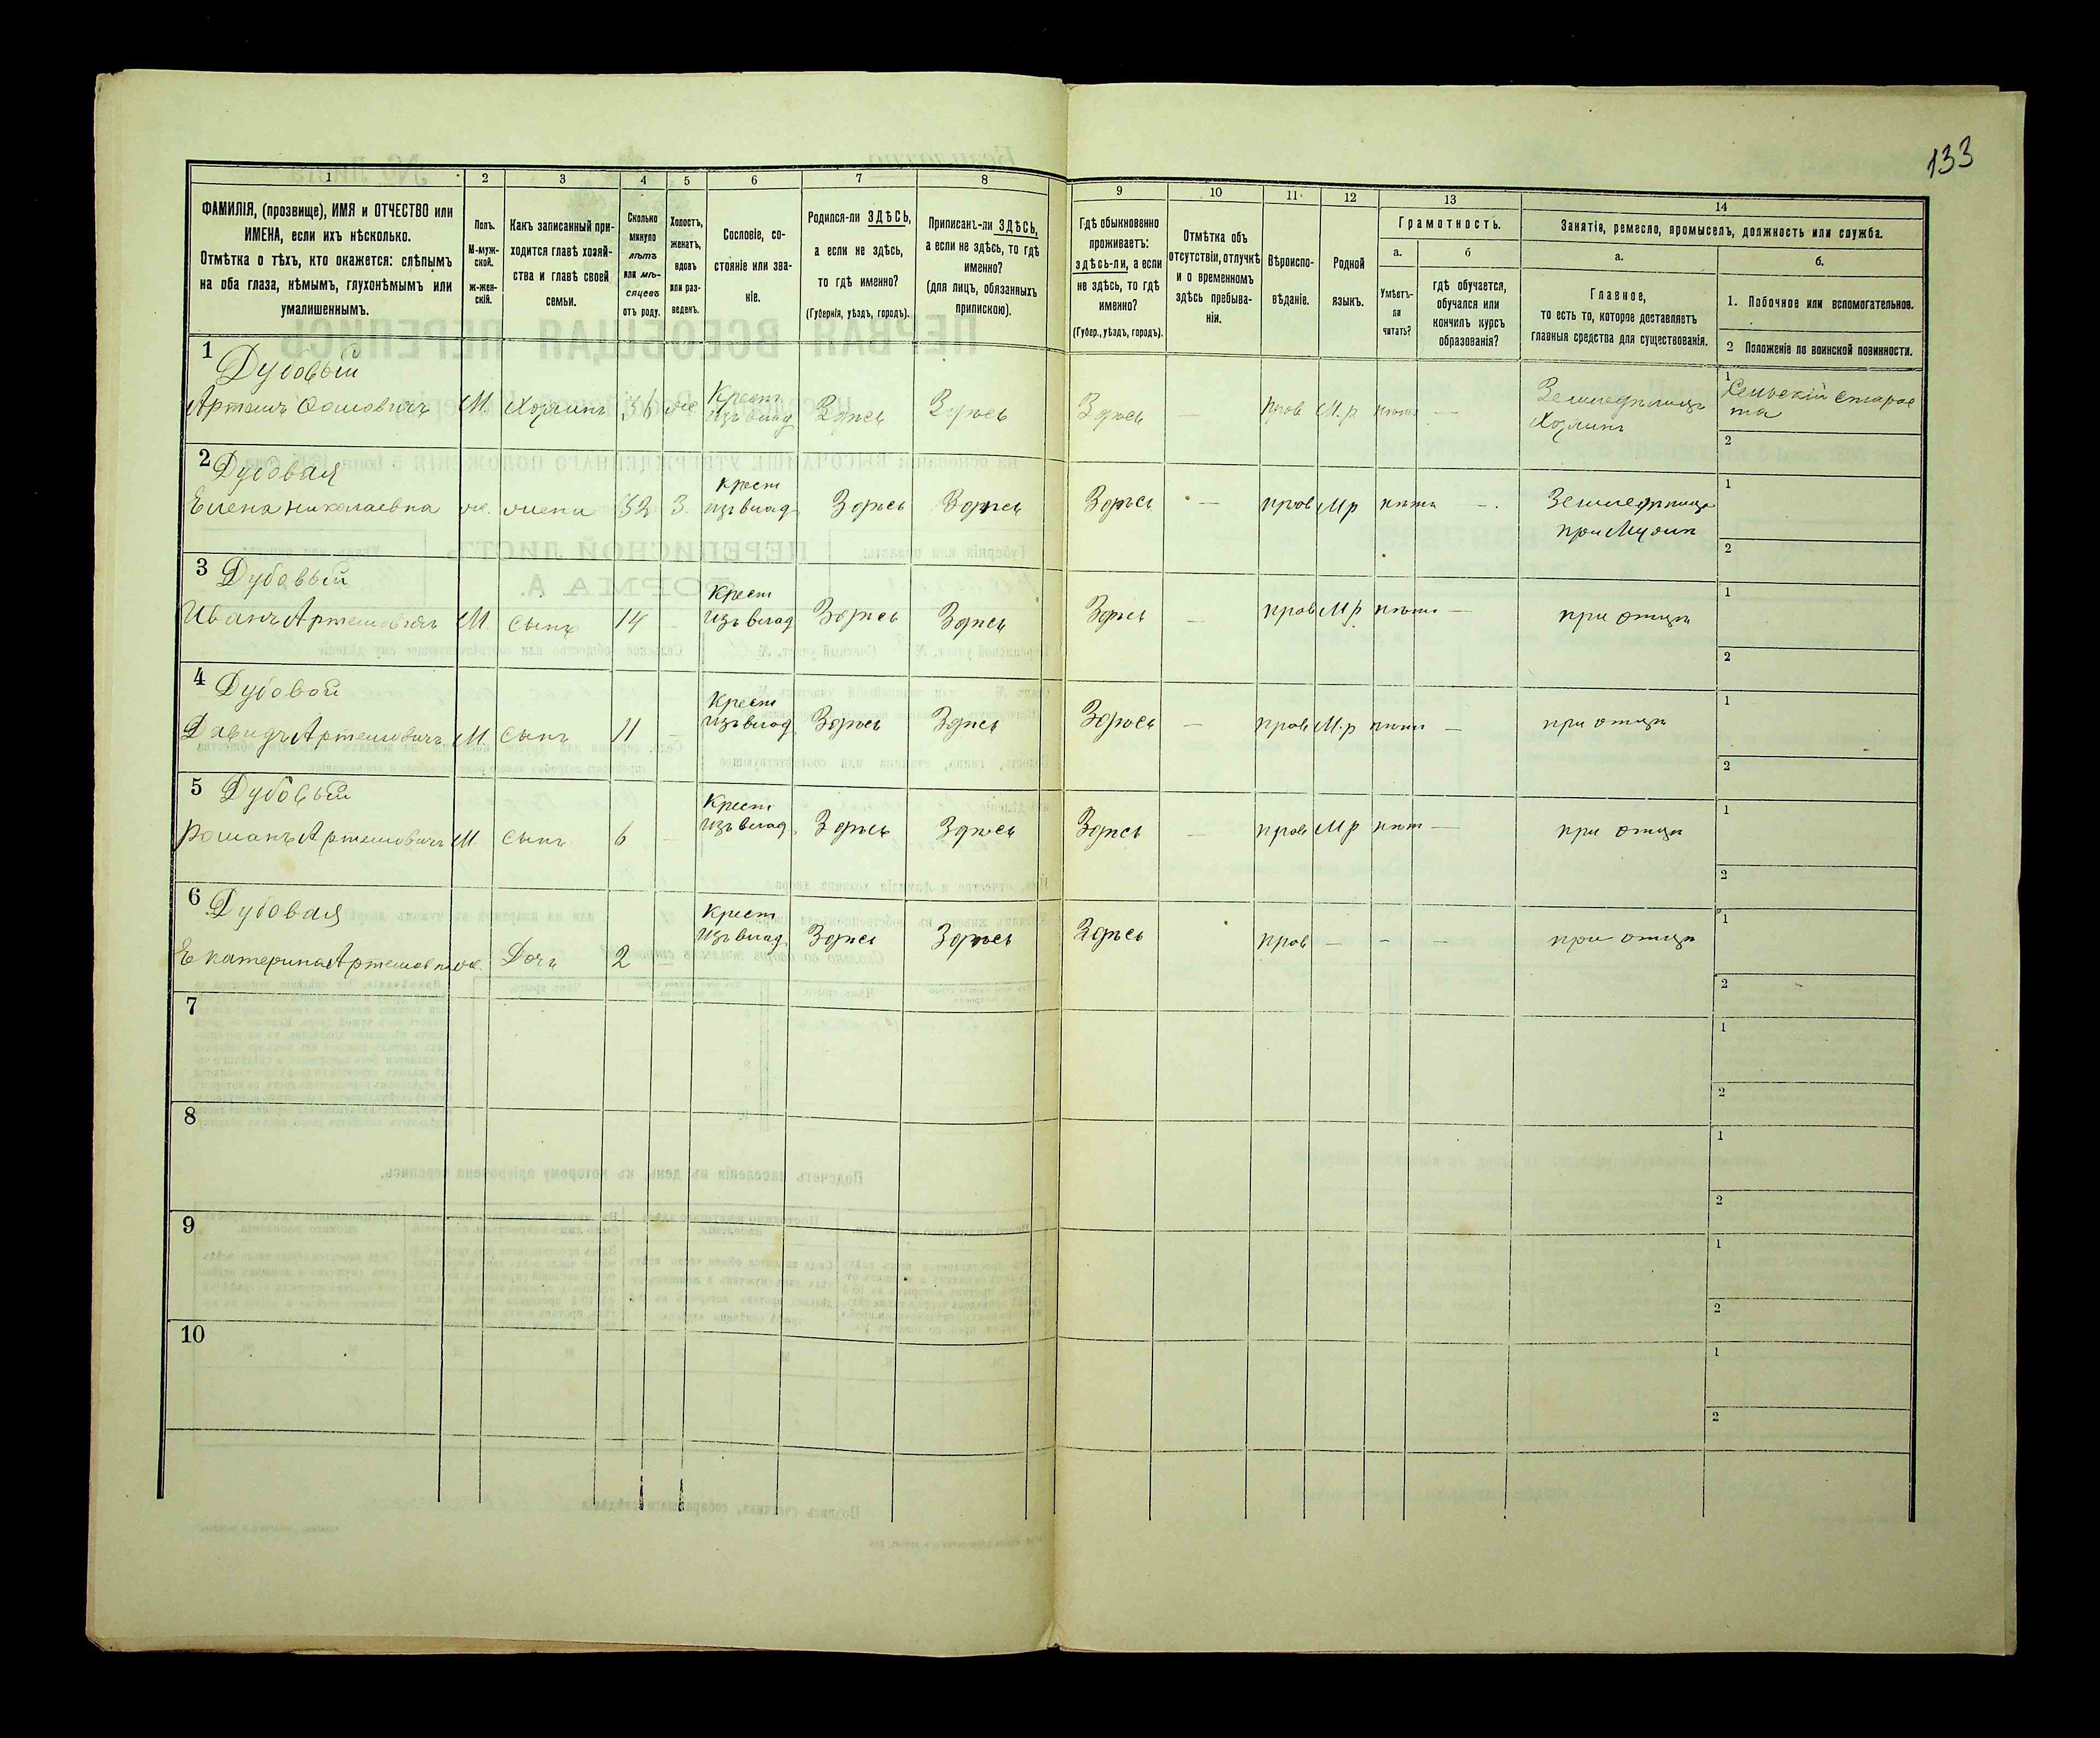 133
1 2 3 4 5 6 7 8 9 10 11 12 13 14
ФАМИЛІЯ, (прозвище), ИМЯ и ОТЧЕСТВО или
ИМЕНА, если ихъ нѣсколько.
Отмѣтка о тѣхъ, кто окажется: слѣпымъ
на оба глаза, нѣмымъ, глухонѣмымъ или
умалишеннымъ.
Полъ.
М-муж-
ской.
ж-жен-
скій.
Какъ записанный при-
ходится главѣ хозяй-
ства и главѣ своей
семьи.
Сколько
минуло
лѣтъ
или мѣ-
сяцевъ
отъ роду.
Холостъ,
женатъ,
вдовъ
или раз-
веденъ.
Сословіе, со-
стояніе или зва-
ніе.
Родился-ли ЗДѢСЬ,
а если не здѣсь,
то гдѣ именно?
(Губернія, уѣздъ, городъ).
Приписанъ-ли ЗДѢСЬ,
а если не здѣсь, то гдѣ
именно?
(для лицъ, обязанныхъ
припискою).
Гдѣ обыкновенно
проживаетъ:
здѣсь-ли, а если
не здѣсь, то гдѣ
именно?
(Губер., уѣздъ, городъ).
Отмѣтка объ
отсутствіи, отлучкѣ
и о временномъ
здѣсь пребыва-
ніи.
Вѣроиспо-
вѣданіе.
Родной
языкъ.
Грамотность.
а.
Умѣетъ-
ли
читать?
б
гдѣ обучается,
обучался или
кончилъ курсъ
образованія?
Занятія, ремесло, промыселъ, должность или служба.
а.
Главное,
то есть то, которое доставляетъ
главныя средства для существованія.
б.
1. Побочное или вспомогательное.
2 Положеніе по воинской повинности.
1 Дубовый
Артемъ М. Хозяинъ 36 же Крест изъ влад Здѣсь Здѣсь Здѣсь — прав М.р нѣтъ — Земледѣлецъ
Хозяинъ
1 Сельскій старос
та
2
2 Дубовая
Елена Николаевна же. жена 32 З. крест изъ влад Здѣсь Здѣсь Здѣсь — прав Мр нѣтъ — Земледѣлица
при Мужѣ
1
2
3 Дубовый
Иванъ Артемовичъ М. Сынъ 14 — Крест изъ влад Здѣсь Здѣсь Здѣсь — прав М р нѣтъ — при отцѣ
1
2
4 Дубовой
Давидъ Артемовичъ М Сынъ 11 — Крест изъ влад Здѣсь Здѣсь Здѣсь — прав М.р нѣтъ — при отцѣ
1
2
5 Дубовый
Романъ Артемовичъ М. Сынъ 6 — Крест изъ влад Здѣсь Здѣсь Здѣсь — прав Мр нѣт — при отцѣ
1
2
6 Дубовая
Екатерина Артемовна же. Дочь 2 — Крест изъ влад Здѣсь Здѣсь Здѣсь прав — — — при отцѣ
1
2
7
1
2
8
1
2
9
1
2
10
1
2